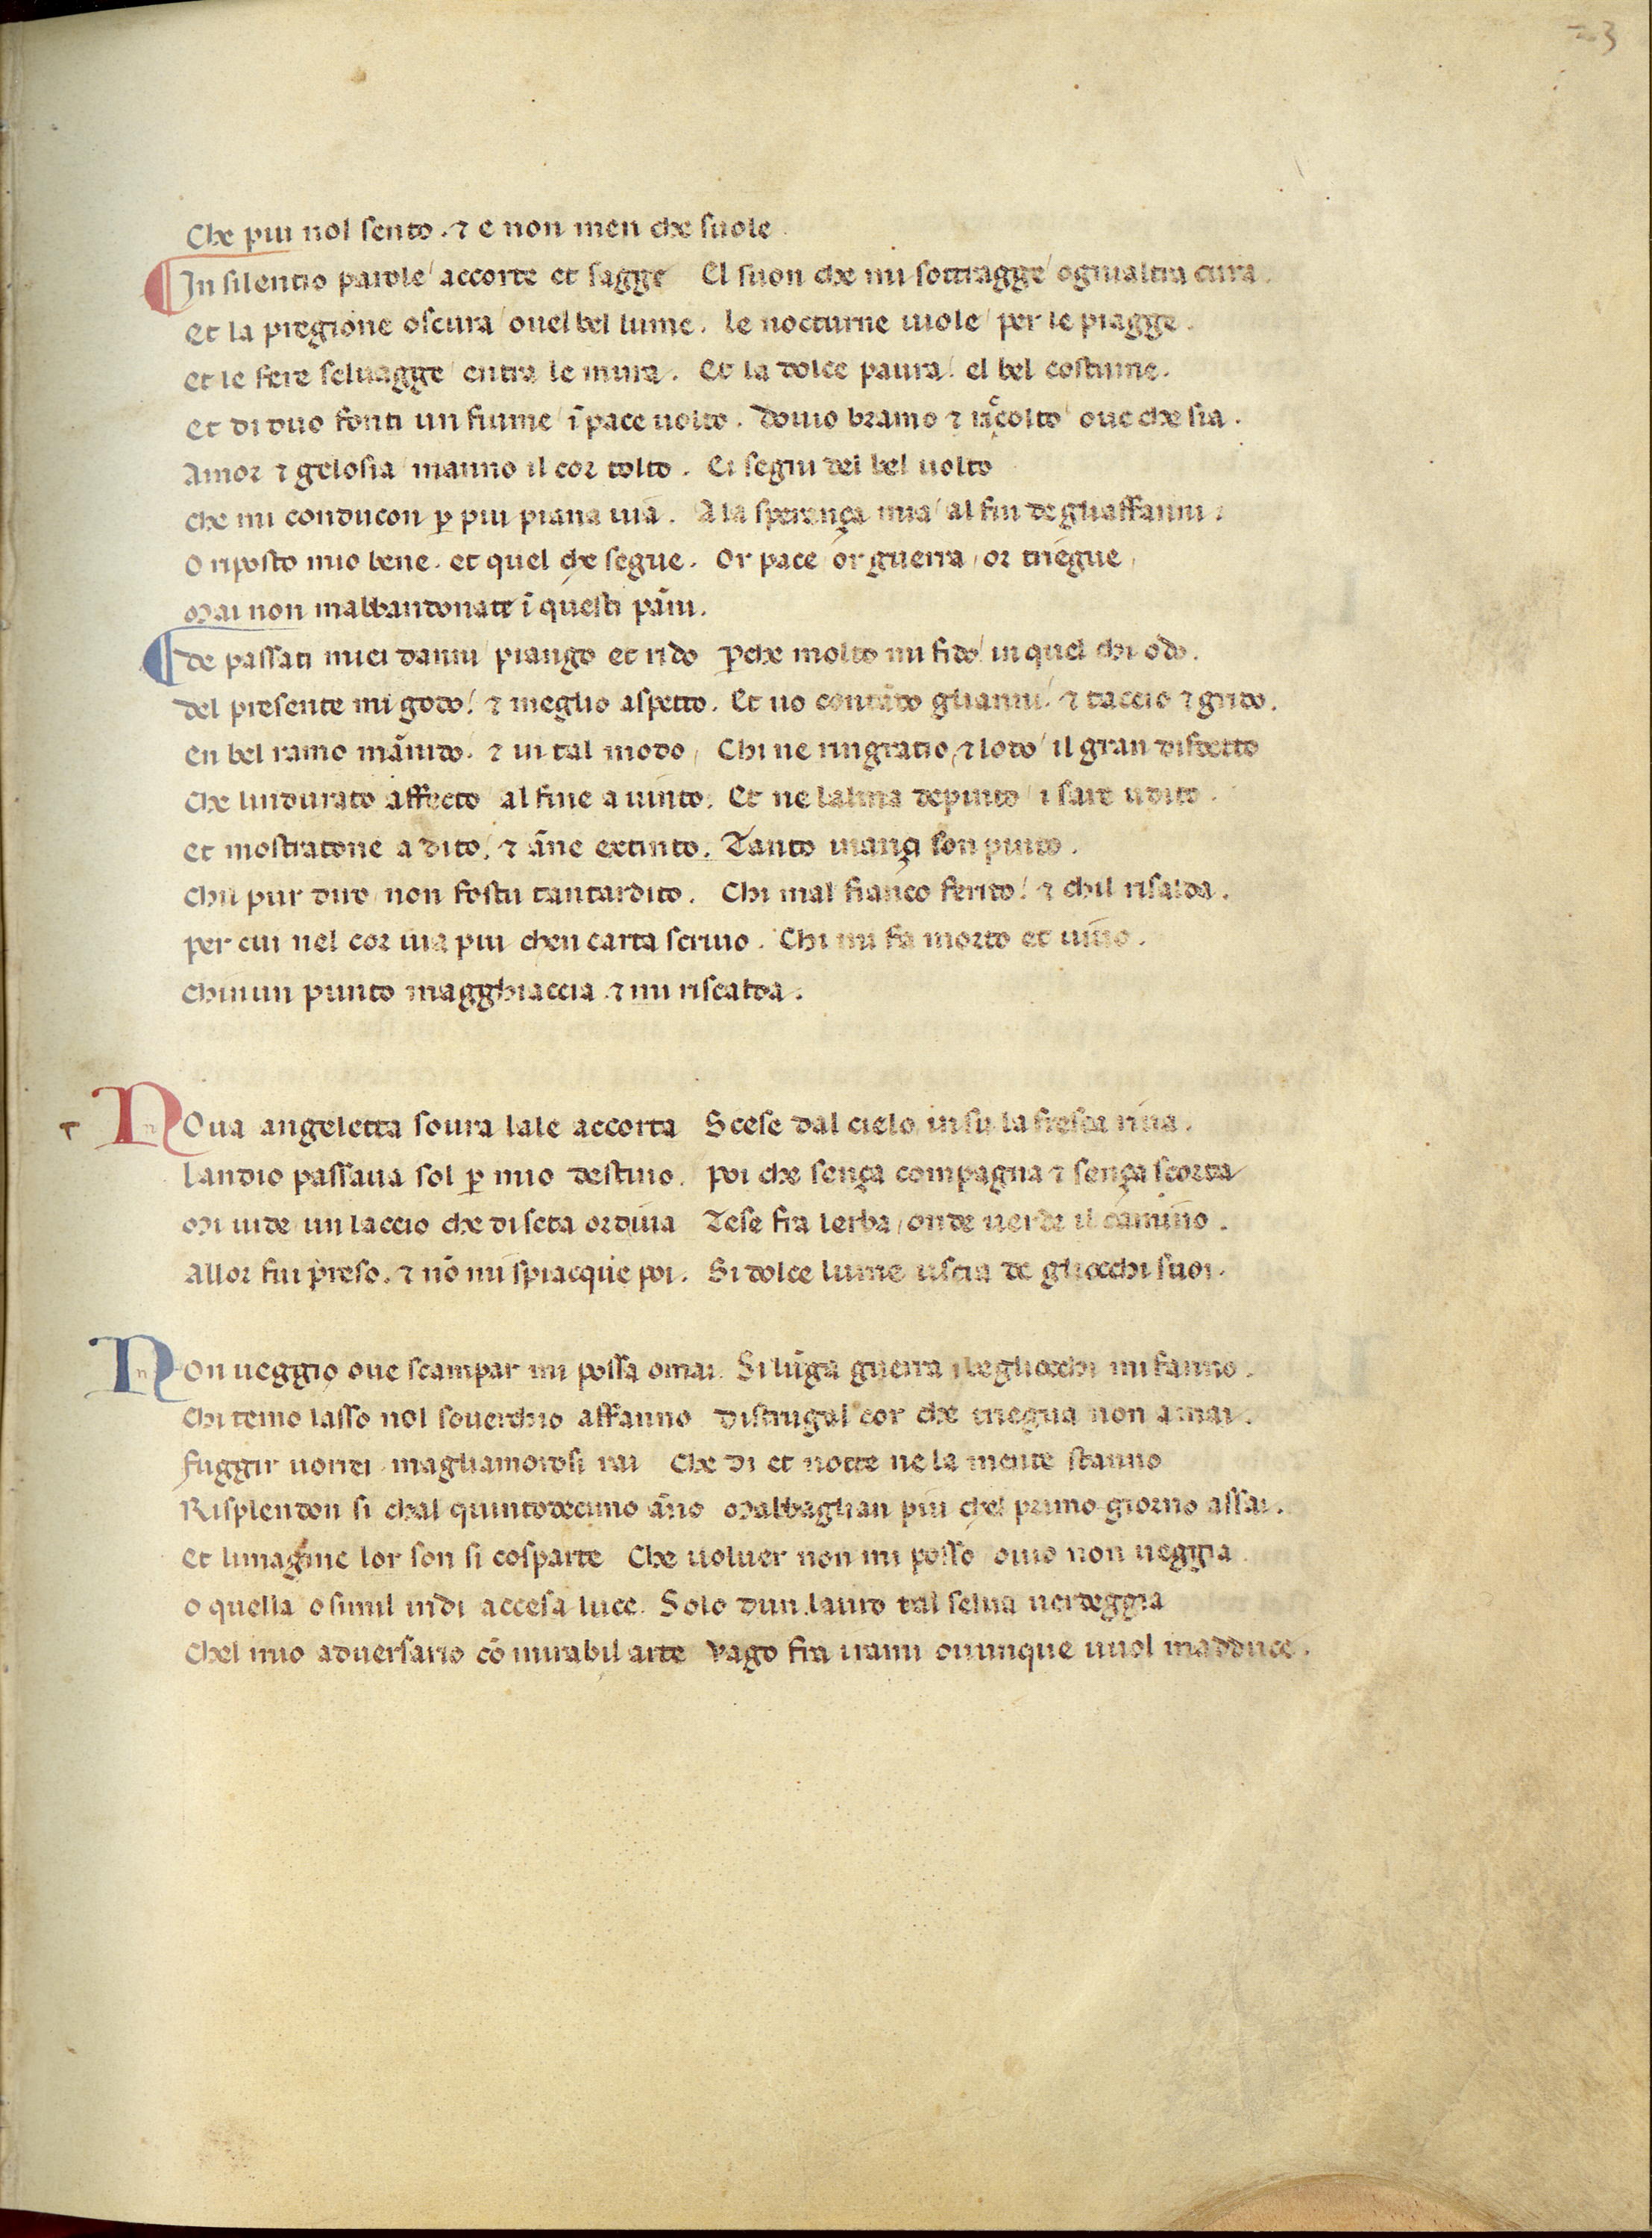 23
Che piu nol sento . ⁊ e non men che suole .
In silentio parole / accorte et sagge El suon che mi sottragge / ogni altra cura .
Et la pregione oscura / ouel bel lume . Le nocturne uiole / per le piagge .
Et le fere seluagge / entra le mura . Et la dolce paura / el bel costume .
Et di duo fonti un fiume / ī pace uolto . Douio bramo ⁊ racolto / oue che sia .
Amor ⁊ gelosia / manno il cor tolto . Ei segni del bel uolto
Che mi conducon ꝑ piu piana uia . Ala sperança mia / al fin de gliaffanni .
O riposto mio bene . et quel che segue . Or pace / or guerra / or triegue /
Mai non mabbandonate ī questi pāni .
De passati miei danni / piango et rido ꝑche molto mi fido / in quel chi odo .
Del presente mi godo / ⁊ meglio aspetto . Et uo contādo glianni / ⁊ taccio ⁊ grido .
En bel ramo mānido / ⁊ in tal modo / Chi ne ringratio / ⁊ lodo / il gran disdetto
Che lindurato affecto / al fine a uinto . Et ne lalma depinto / i sare udito .
Et mostratone a dito / ⁊ āne extinto . Tanto inançi son pinto .
Chil pur diro / non fostu tantardito . Chi mal fianco ferito / ⁊ chil risalda .
Per cui nel cor uia piu chen carta scriuo . Chi mi fa morto et uiuo .
Chinun punto magghiaccia ⁊ mi riscalda .
NOua angeletta soura lale accorta Scese dal cielo in su la fresca riua .
Landio passaua sol ꝑ mio destino . Poi che sença compagna ⁊ sença scorta
Mi uide / un laccio che di seta ordiua Tese fra lerba / onde uerde il camino .
Allor fui preso . ⁊ nō mi spiacque poi . Si dolce lume uscia de gliocchi suoi .
NOn ueggio oue scampar mi possa omai . Si lūga guerra i begliocchi mi fanno .
Chi temo lasso nol souerchio affanno Distrugal cor che triegua non a mai .
Fuggir uorrei . magliamorosi rai Che di et notte ne la mente stanno
Risplendon si chal quintodecimo āno Mabbaglian piu chel primo giorno assai .
Et limagine lor son si cosparte Che uoluer non mi posso / ouio non ueggia .
O quella / o simil indi accesa luce . Solo dun lauro tal selua uerdeggia
Chel mio aduersario cō mirabil arte Vago fra irami ouunque uuol madduce .